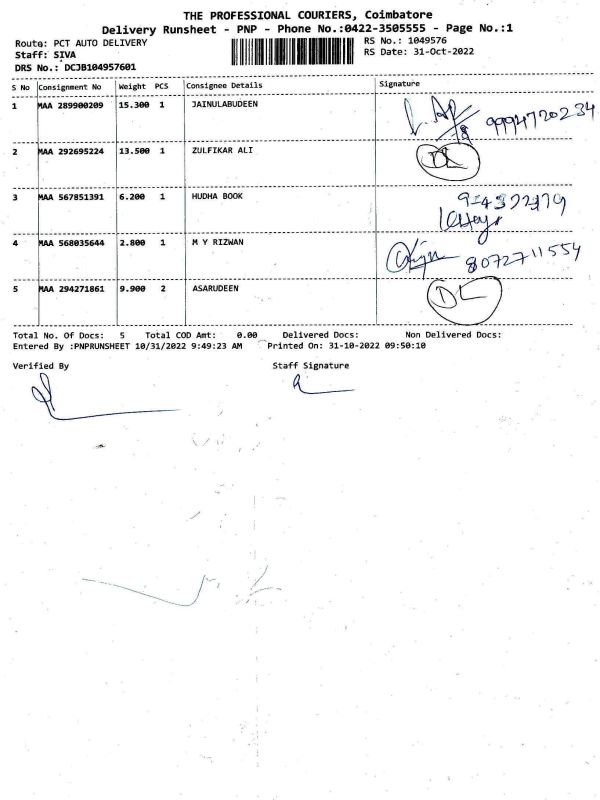 THE PROFESSIONAL COURIERS, Coimbatore
Delivery Runsheet - PNP - Phone No.:0422-3505555 - Page No.:1
Route: PCT AUTO DELIVERY
RS No.: 1049576
Staff: SIVA
RS Date: 31-Oct-2022
DRS No.: DCJB104957601
S No Consignment No Weight PCS Consignee Details Signature
1 MAA 289900209 15.300 1 JAINULABUDEEN
2 MAA 292695224 13.500 1 ZULFIKAR ALI DL
3 MAA 567851391 6.200 1 HUDHA BOOK
4 MAA 568035644 2.800 1 M Y RIZWAN 8072711554
5 MAA 294271861 9.900 2 ASARUDEEN DL
Total No. Of Docs: 5 Total COD Amt: 0.00 Delivered Docs: Non Delivered Docs:
Entered By :PNPRUNSHEET 10/31/2022 9:49:23 AM Printed On: 31-10-2022 09:50:10
Verified By Staff Signature